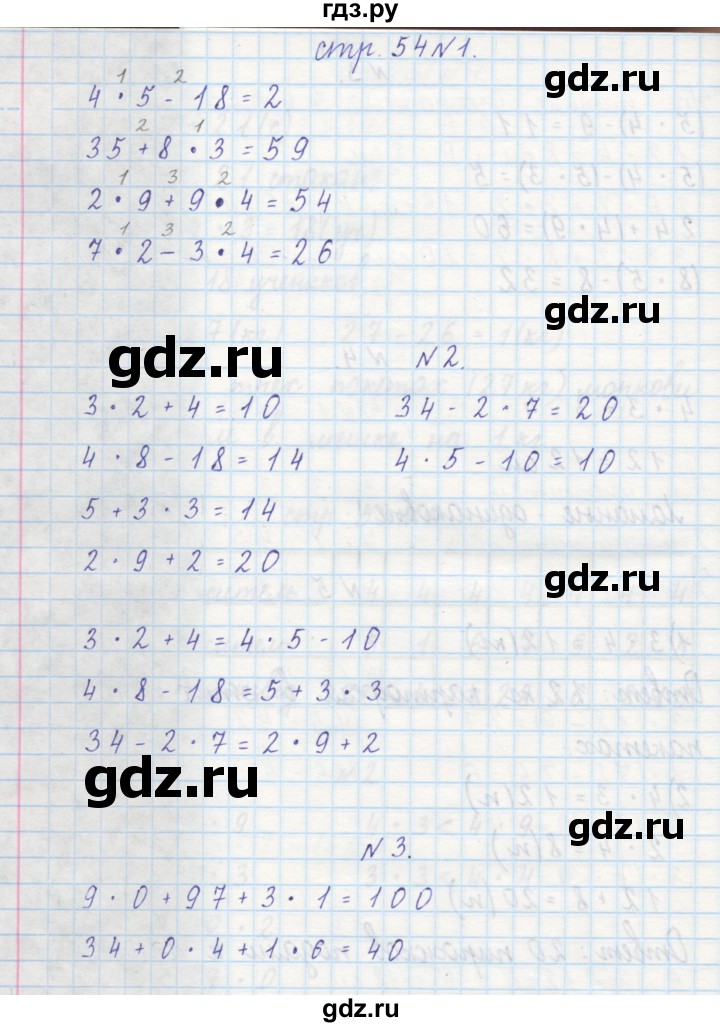 гдз.ру
стр. 54 №1.
gdz.ru
1 2
4 · 5 - 18 = 2
2 1
35 + 8 · 3 = 59
gdz.ru
1 3 2
2 · 9 + 9 · 4 = 54
1 3 2
7 · 2 - 3 · 4 = 26
gdz.ru
gdz.ru
№2.
3 · 2 + 4 = 10 34 - 2 · 7 = 20
4 · 8 - 18 = 14 4 · 5 - 10 = 10
5 + 3 · 3 = 14
2 · 9 + 2 = 20
gdz.ru
3 · 2 + 4 = 4 · 5 - 10
4 · 8 - 18 = 5 + 3 · 3
34 - 2 · 7 = 2 · 9 + 2
gdz.ru
gdz.ru
№3.
9 · 0 + 97 + 3 · 1 = 100
34 + 0 · 4 + 1 · 6 = 40
gdz.ru